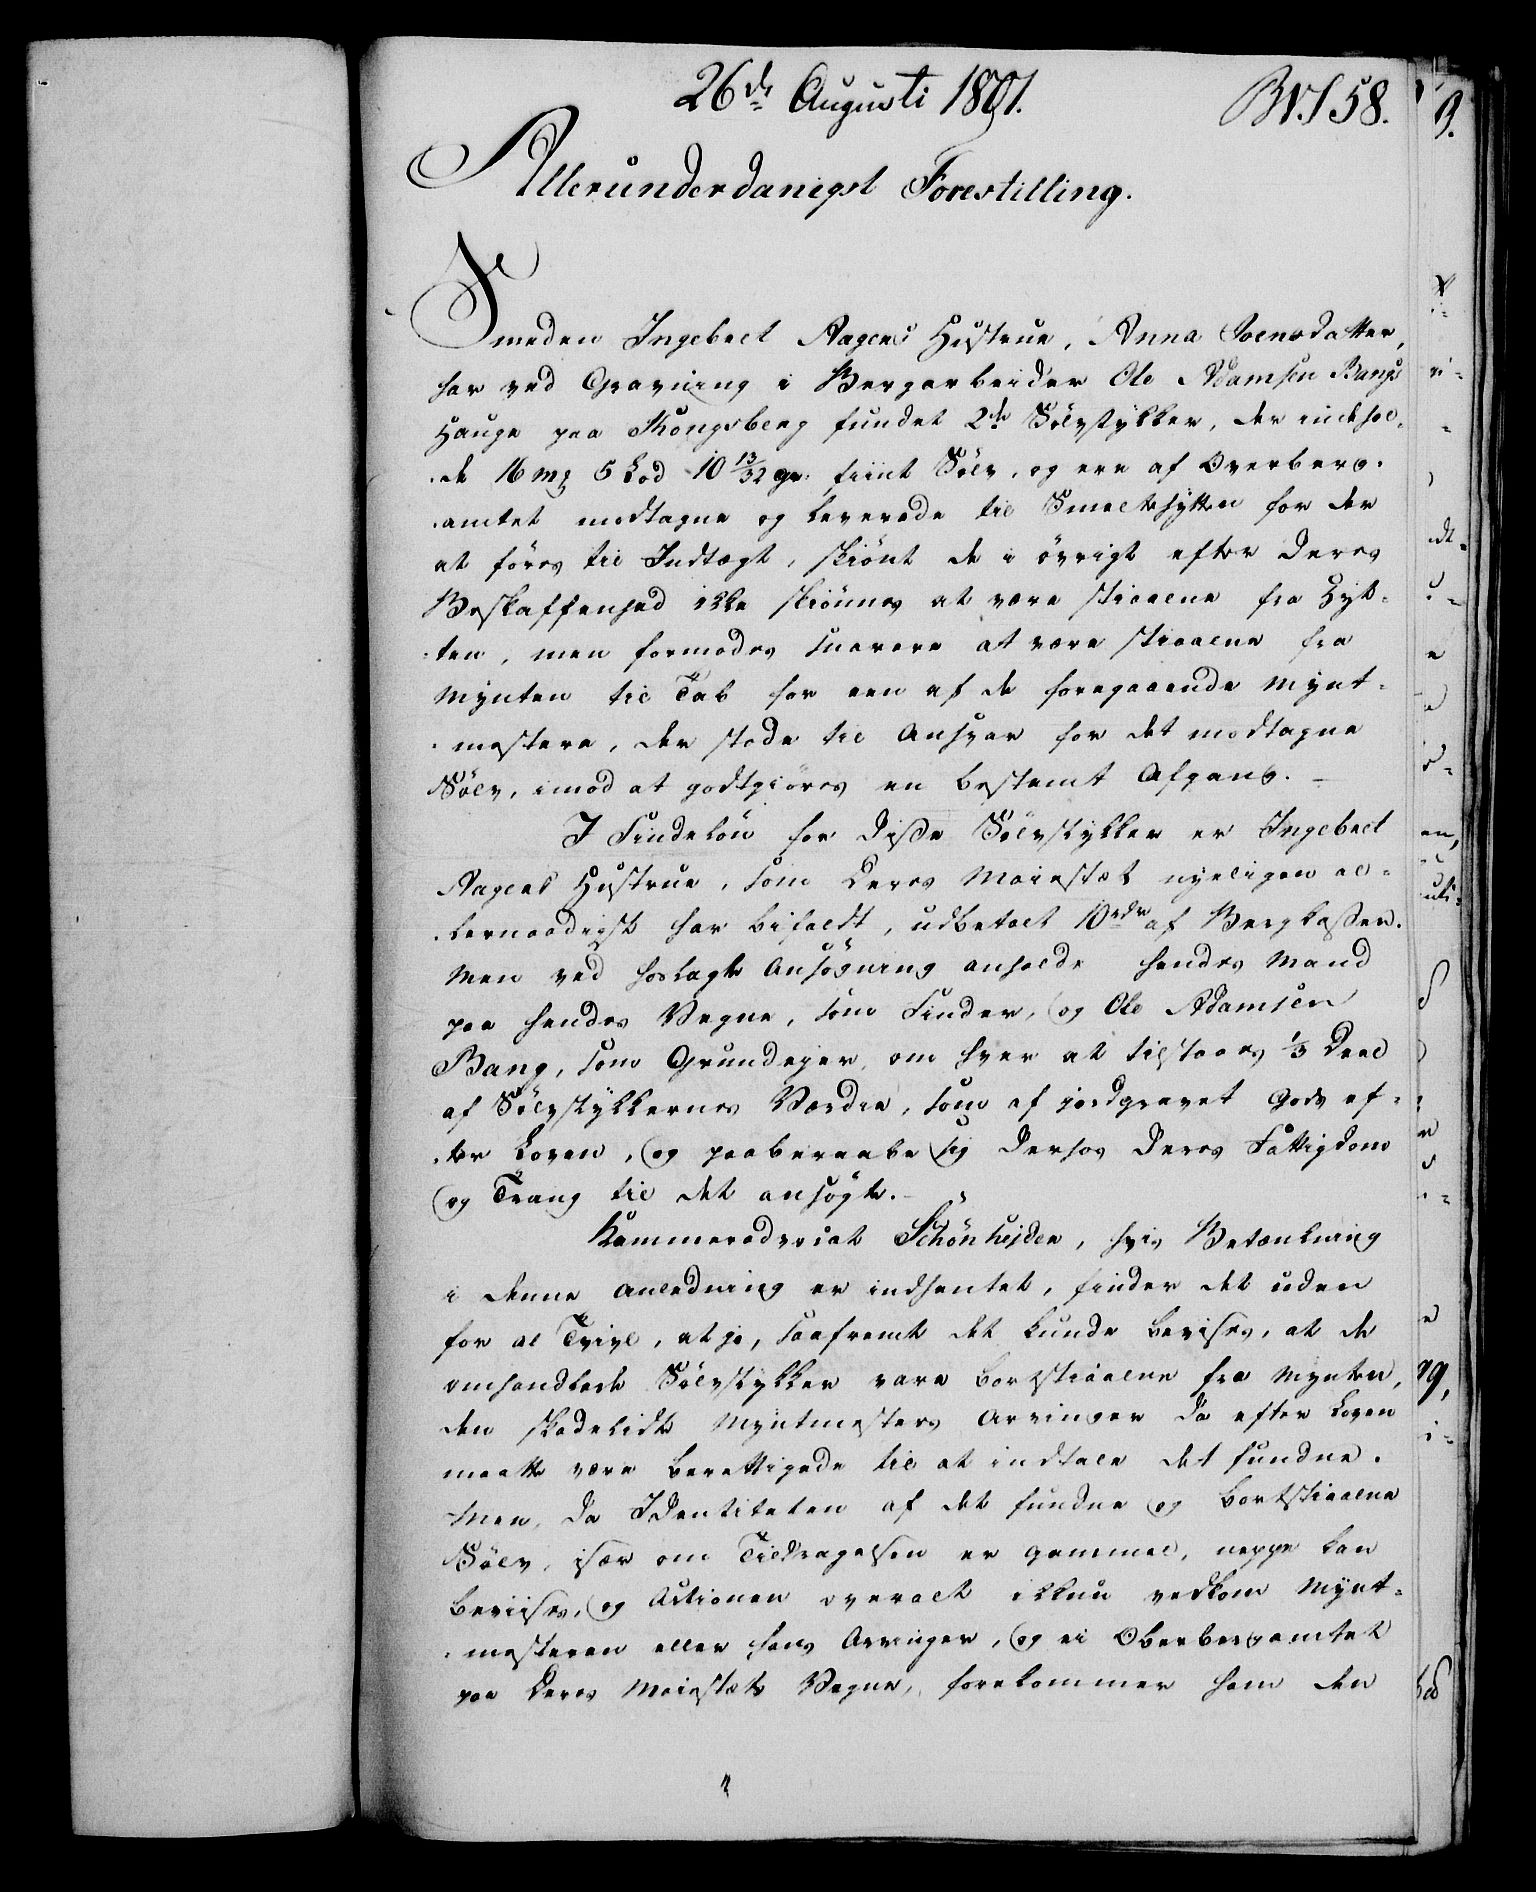 26de Augusti 1801. BW.S 58.
Allerunderdanigst Forestilling.
Smeden Ingebret Aagens Hustrue, Anna Svensdatter,
har ved Gravning i Bergarbeider Ole Adamsen Bangs
Hauge paa Kongsberg fundet 2de Sölvstykker, der indehol-
de 16 mk 5 Lod 10 13/32 gr. fiint Sölv, og ere af Overberg-
amtet modtagne og leverede til Smeltehytten for der
at föres til Indtægt, skiönt de i övrigt efter deres
Beskaffenhed ikke skiönnes at være stiaalne fra Hyt-
ten, men formodes snarere at være stiaalne fra
Mynten til Tab for een af de foregaaende Mynt-
mestere, der stode til Ansvar for det modtagne
Sölv, imod at godtgiöres en bestemt Afgang. –
I Findelön for disse Sölvstykker er Ingebret
Aagens Hustrue, som Deres Maiestæt nyeligen al-
lernaadigst har bifaldt, udbetalt 10 rdr af Bergkassen.
Men ved hoslagte Ansögning anholde hendes Mand
paa hendes Vegne, som Finder, og Ole Adamsen
Bang, som Grundejer, om hver at tilstaaes 1/3 Deel
af Sölvstykkernes Værdie, som af jordgravet Gods ef-
ter Loven, og paaberaabe sig derhos deres Fattigdom
og Trang til det ansögte. –
Kammeradvocat Schönhejder, hvis Betænkning
i denne Anledning er indhentet, finder det uden
for al Tvivl, at jo, saafremt det kunde bevises, at de
omhandlede Sölvstykker vare bortstiaalne fra Mynten,
den skadelidte Myntmesters Arvinger da efter Loven
maatte være berettigede til at indtale det fundne.
Men, da Identiteten af det fundne og bortstiaalne
Sölv, især om Tildragelsen er gammel, neppe kan
beviises, og Actionen overalt ikkun vedkom Mynt-
mesteren eller hans Arvinger, og ei Oberbergamtet
paa Deres Maiestæts Vegne, forekommer ham den